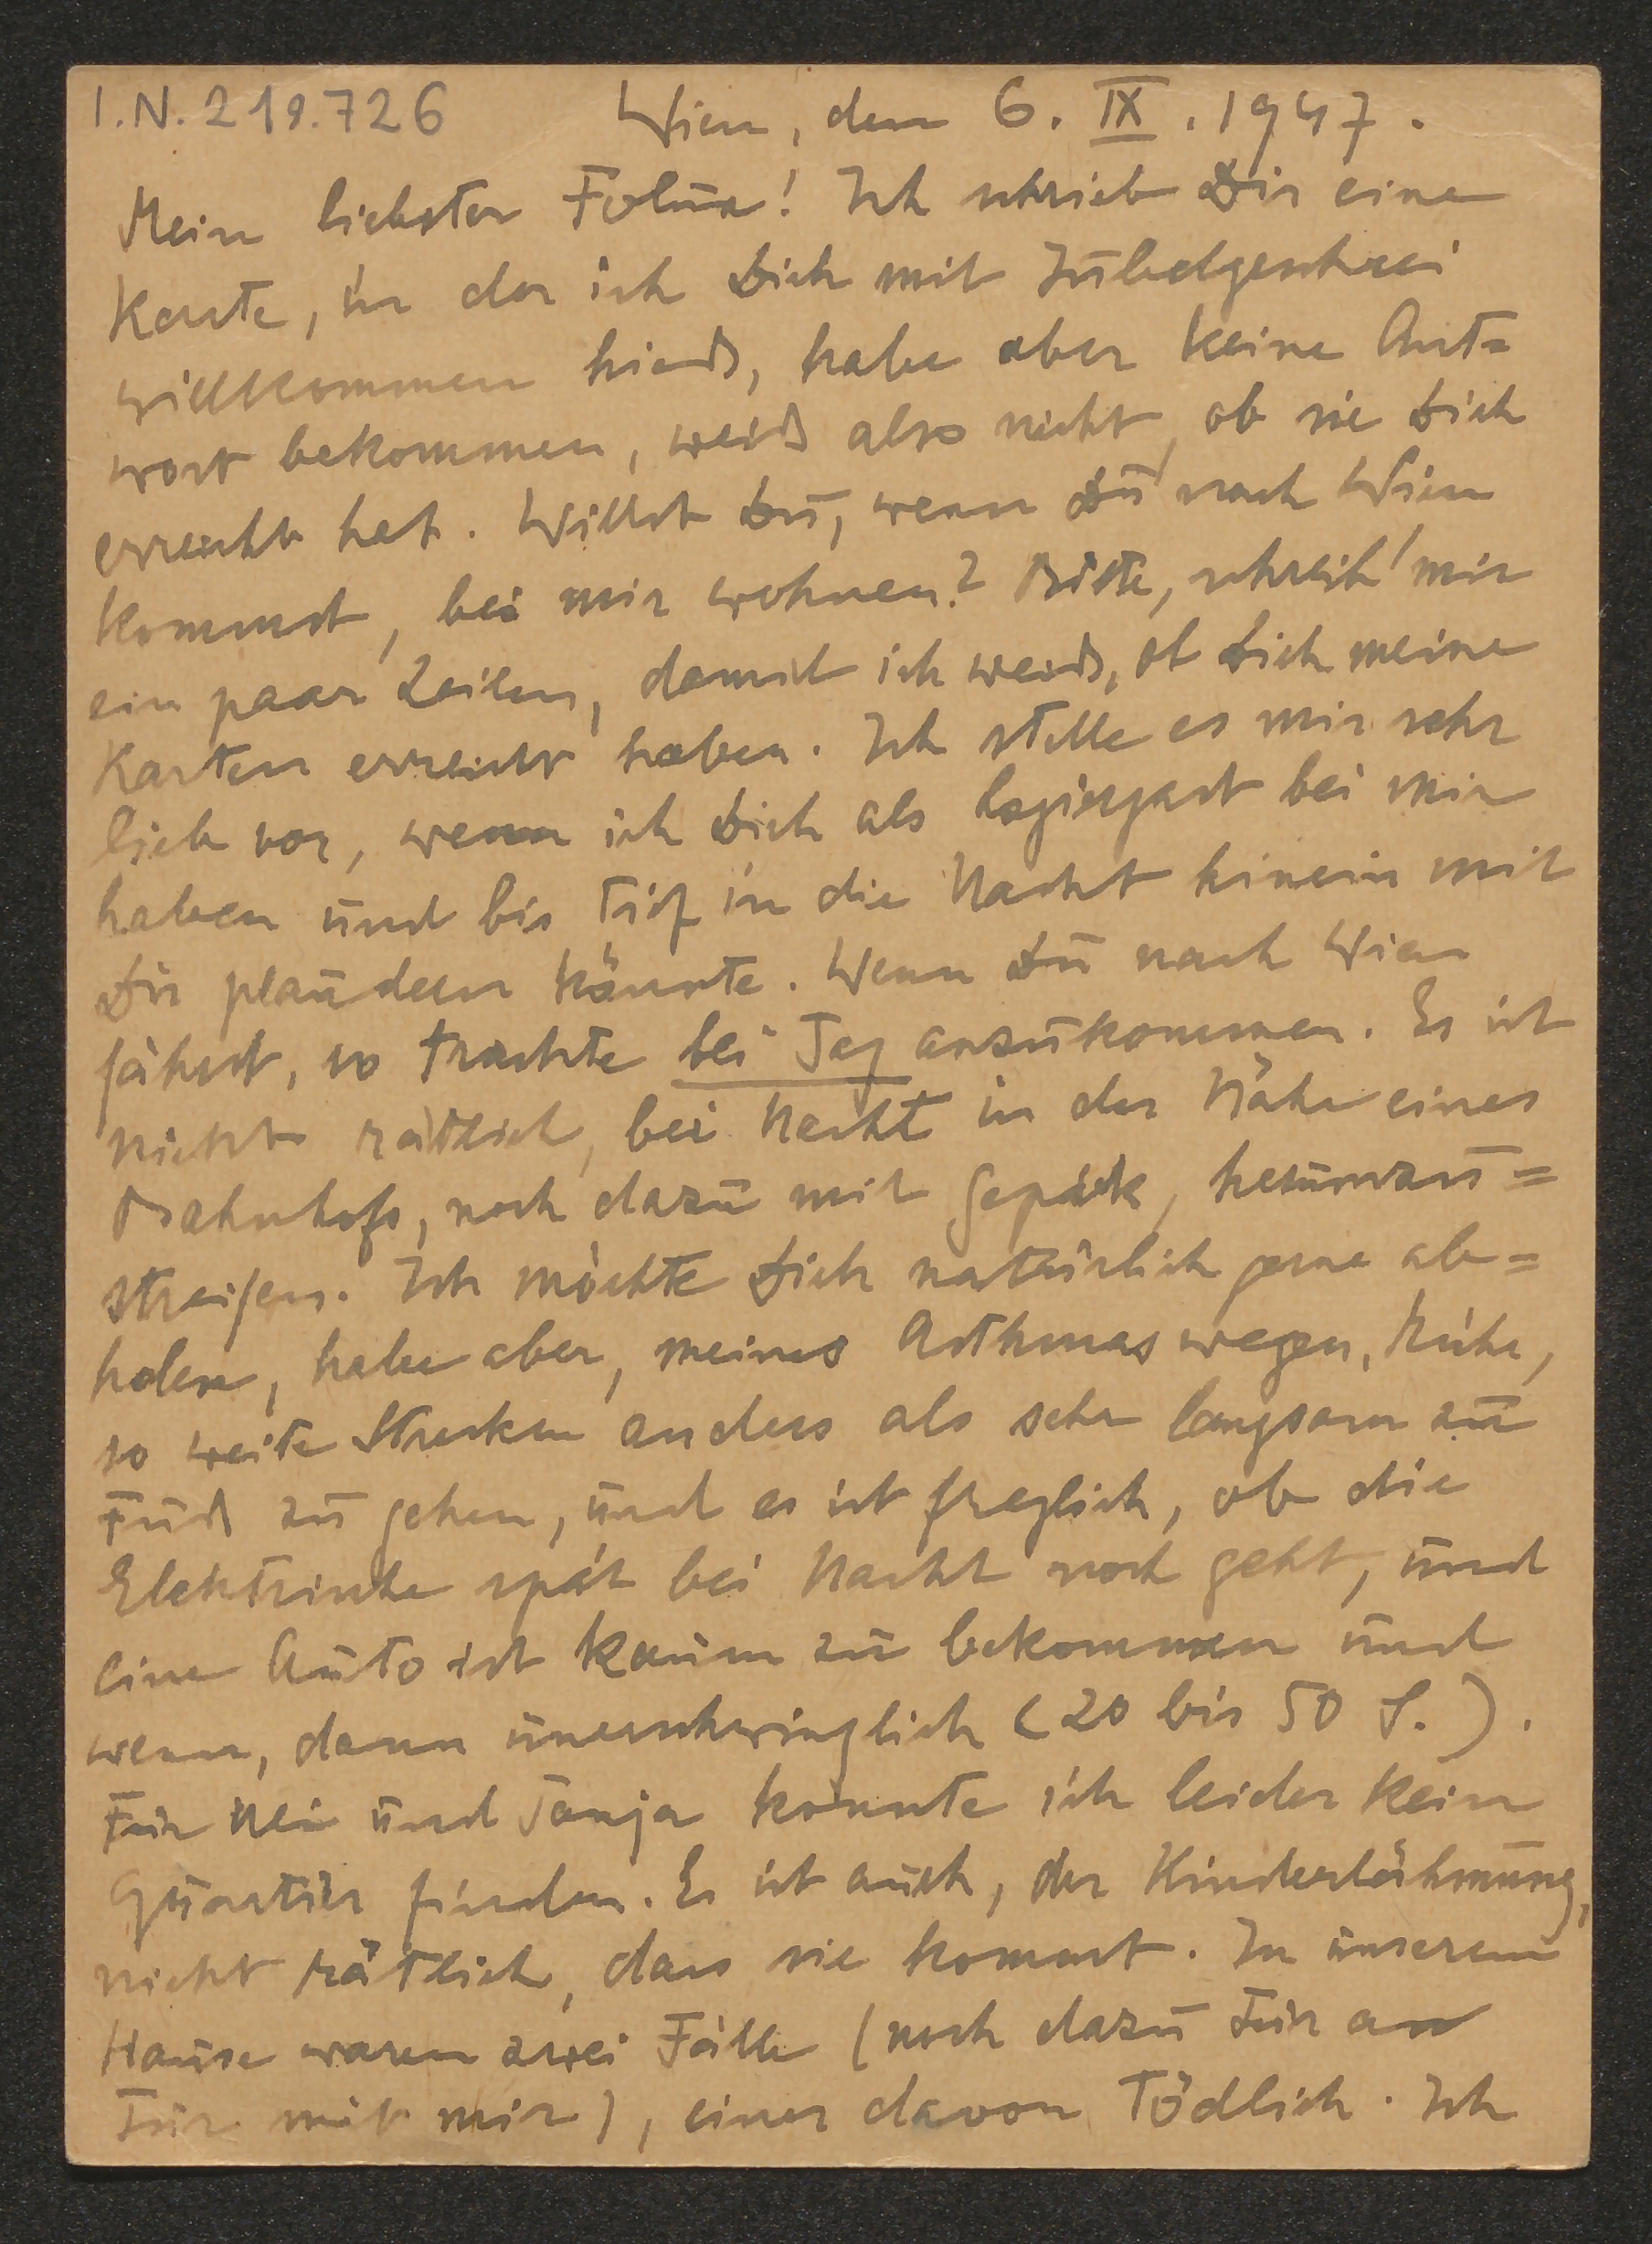 I.N. 219.726 Wien, den 6. IX. 1947.
Mein liebster Folma! Ich schrieb Dir eine
Karte, in der ich Dich mit Jubelgeschrei
willkommen hieß, habe aber keine Ant=
wort bekommen, weiß also nicht, ob sie Dich
erreicht hat. Willst Du, wenn Du nach Wien
kommst, bei mir wohnen? Bitte, schreib' mir
ein paar Zeilen, damit ich weiß, ob Dich meine
Karten erreicht haben. Ich stelle es mir sehr
lieb vor, wenn ich Dich als Logiergast bei mir
haben und bis tief in die Nacht hinein mit
Dir plaudern könnte. Wenn Du nach Wien
fährst, so trachte bei Tag anzukommen. Es ist
nicht rätlich, bei Nacht in der Nähe eines
Bahnhofs, noch dazu mit Gepäck, herumzu=
streifen. Ich möchte Dich natürlich gerne ab=
holen, habe aber, meines Asthmas wegen, Mühe,
so weite Strecken anders als sehr langsam zu
Fuß zu gehen, und es ist fraglich, ob die
Elektrische spät bei Nacht noch geht, und
ein Auto ist kaum zu bekommen und
wenn, dann unerschwinglich (20 bis 50 S.).
Für und Tanja konnte ich leider kein
Quartier finden. Es ist auch, der Kinderlähmung,
nicht rätlich, dass sie kommt. In unserem
Hause waren zwei Fälle (noch dazu Tür an
Tür mit mir), einer davon tödlich. Ich